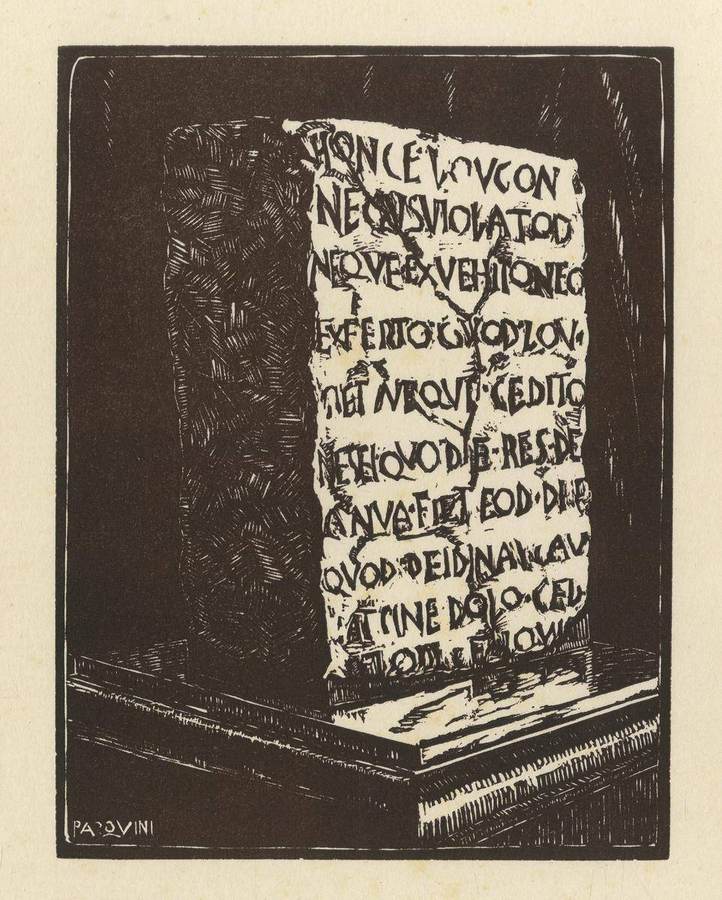 HONCE·LOVCOM
NEQVS VIOLATOD
NEQVE·EXVEHITO NEQ
EXFERTO·QVOD·LOV·
NEQVE·CEDITO
NESEI·QVO DIE·RES·DE
ANVA·FIET EOD·DIE
QVOD·DEIDINAI·CAV
ATCINE DOLO·CED
PARQVINI